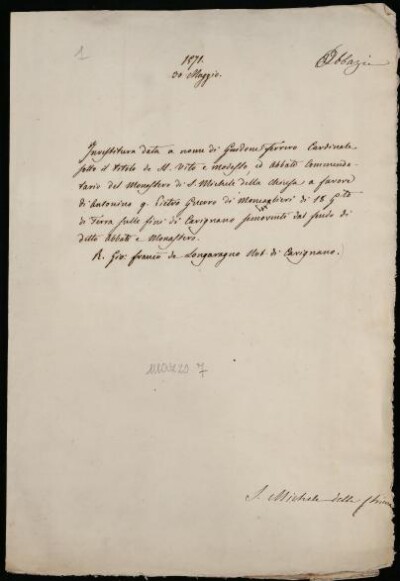 1
Abbazie
1571.
30 Maggio.
Investitura data a nome di Guidone Ferrero Cardinale
sotto il titolo de SS. Vito e Modesto, ed Abbate Commenda-
tario del Monastero di S. Michele della Chiusa a favore
di Antonino q. Pietro di 18 Gto
di Terra sulle fini di Carignano semovente dal feudo di
detto Abbate e Monastero.
R. Gio. Franco de Longaragno Not. di Carignano.
mazzo 7
S. Michele della Chiusa